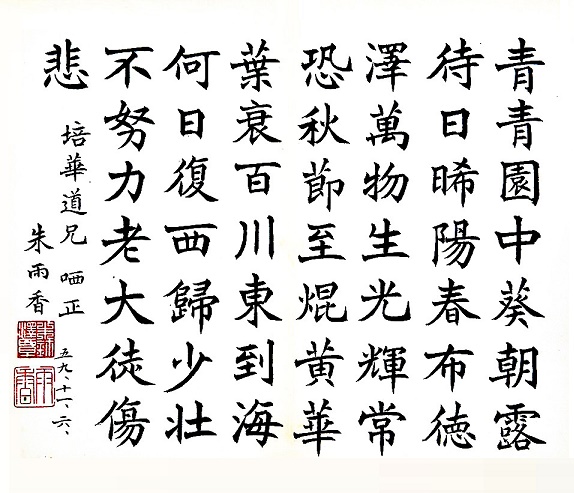 青青園中葵朝露
待日晞陽春布德
澤萬物生光輝常
恐秋節至焜黃華
葉衰百川東到海
何日復西歸少壯
不努力老大徒傷
悲
培華道兄 哂正
五九、十一、六、
朱雨香